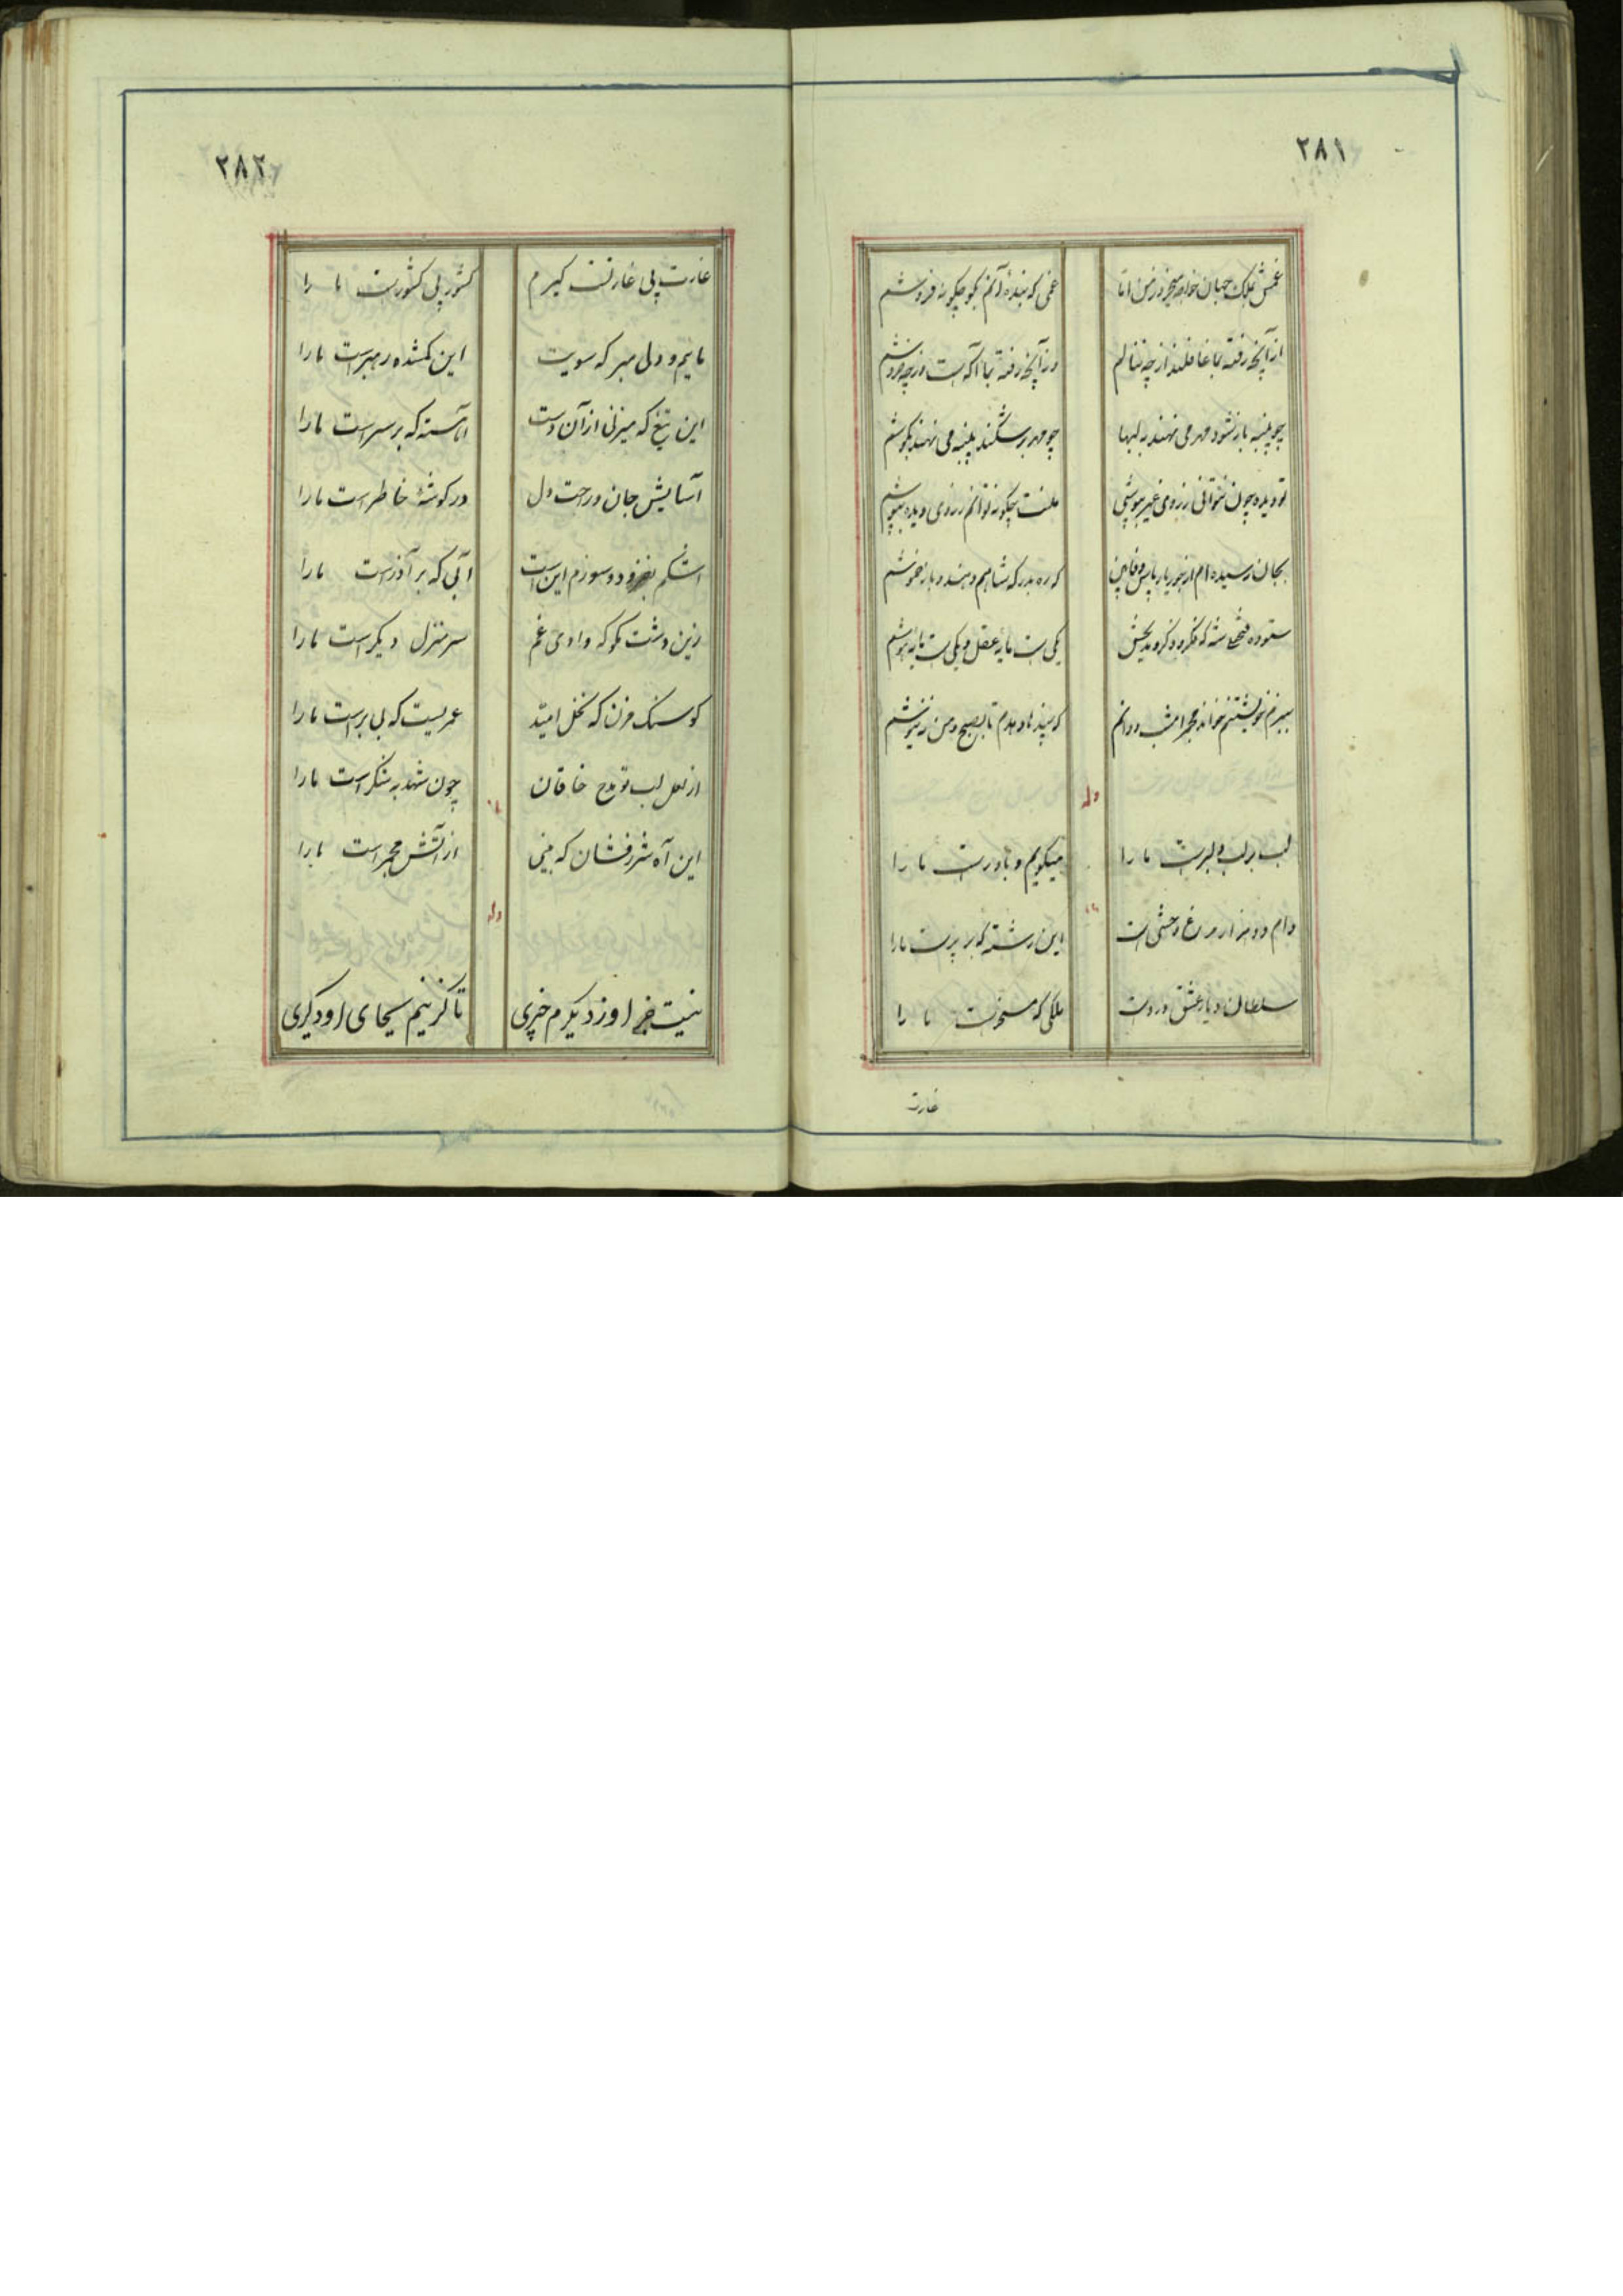 ۲۸۱
غمش بملک جهان خواجه میخرد ز من اما غمی که بنده آنم بگو چگونه فروشم
از آنچه رفته بما غافلند از چه ننالم وز آنچه رفته بما آگهست از چه خروشم
چو پنبه باز نشود مهر می نهند به لبها چو مهر بر شکند پنبه می نهند بگوشم
تو دیده چون نتوانی ز روی غیر بپوشی منت چگونه توانم ز روی دیده بپوشم
بجان رسیده ام از جور یار پاس وفا بین که ره بدرگه شاهم دهند و باز خموشم
ستوده فتحعلی شه که فکر و ذکر و مدیحش یکی ست مایه عقل و یکی ست مایه هوشم
ببزم خویشتنم خواند مجمر امشب و دانم که پند
وله
لب بر لب دلبرست ما را میگویم و باورست ما را
دام دو هزار مرغ وحشی است این رشته که بر پرست ما را
سلطان دیار عشق دردست ملکی که مسخرست ما را
غارت
۲۸۲
غارت پی غارتست گیرم کشور پی کشورست ما را
مائیم و دلی مبر که سویت این گمشده رهبرست ما را
این تیغ که میزنی از آن دست ما را
آسایش جان و راحت دل در گوشهٔ خاطرست ما را
اشکم بفزود و سوزم این است آبی که بر آذرست ما را
زین دشت مگو که وادی غم سر منزل دیگرست ما را
گو سنگ مزن که نخل امید عمریست که بی برست ما را
از لعل لب تو مدح خاقان چون شهد به شکرست ما را
این آه شررفشان که بینی از آتش مجمرست ما را
وله
نیست جز او ز دیگرم خبری تا گزینم بجای او دگری